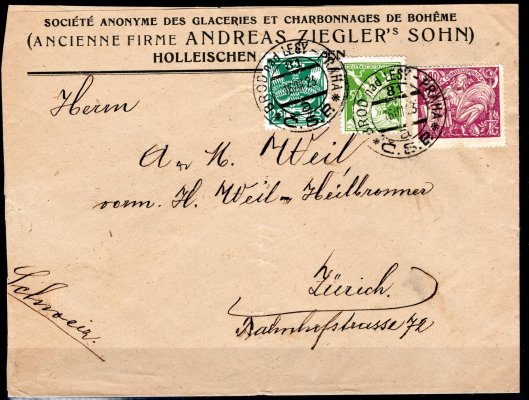 SOCIÉTÉ ANONYME DES GLACERIES ET CHARBONNAGES DE BOHÊME
(ANCIENNE FIRME ANDREAS ZIEGLER'S SOHN)
HOLLEISCHEN
BROD nad LESY - PRAHA
Č.S.R.
BROD nad LESY - PRAHA
Č.S.R.
Herrn
M. Weil
vorm. H. Weil-Heilbronner
Zürich.
Bahnhofstrasse 72
Schweiz.